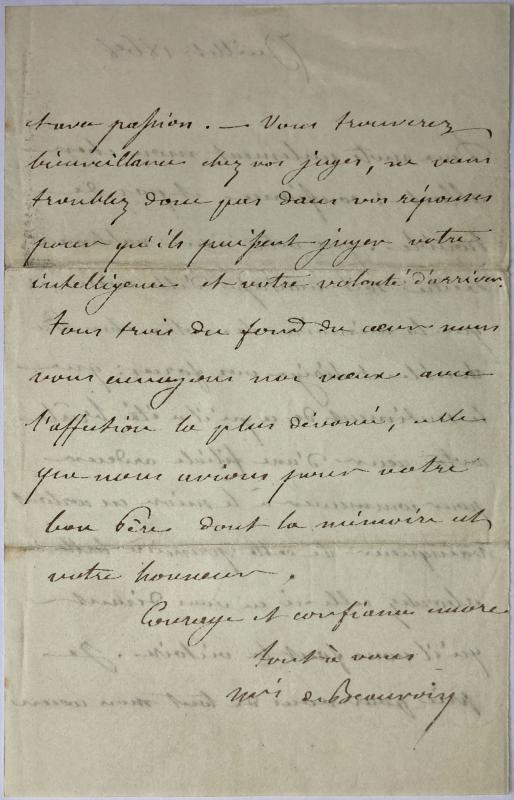 et avec passion. — Vous trouverez
bienveillance chez vos juges, ne vous
troublez donc pas dans vos réponses
pour qu'ils puissent juger votre
intelligence et votre volonté d'arriver.
Tous trois du fond du cœur nous
vous envoyons nos vœux avec
l'affection la plus dévouée, celle
que nous avions pour votre
bon Père dont la mémoire est
votre honneur.
Courage et confiance encore
tout à vous
de Beauvoir